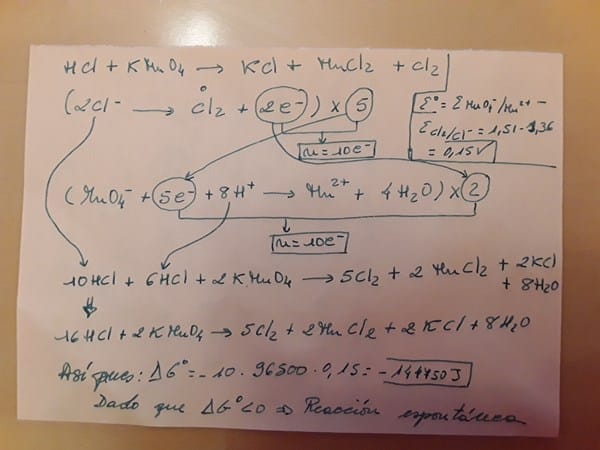 HCl + KMnO₄ → KCl + MnCl₂ + Cl₂
(2Cl⁻ → Cl₂ + 2e⁻) × 5
n = 10e⁻
ε° = ε MnO₄⁻/Mn²⁺ −
ε Cl₂/Cl⁻ = 1,51 - 1,36
= 0,15V
(MnO₄⁻ + 5e⁻ + 8H⁺ → Mn²⁺ + 4H₂O) × 2
n = 10e⁻
10HCl + 6HCl + 2KMnO₄ → 5Cl₂ + 2MnCl₂ + 2KCl
+ 8H₂O
16HCl + 2KMnO₄ → 5Cl₂ + 2MnCl₂ + 2KCl + 8H₂O
Así pues: ΔG° = -10 · 96500 · 0,15 = - 144750J
Dado que ΔG° < 0 ⇒ Reacción espontánea